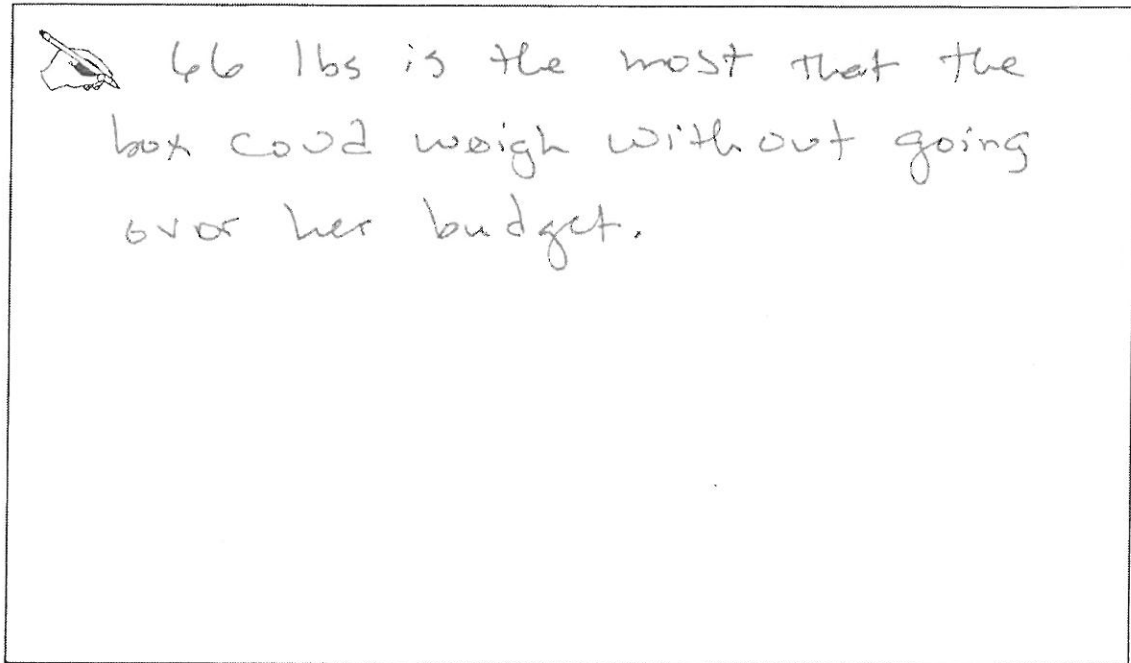 66 lbs is the most that the
box coud weigh without going
over her budget.